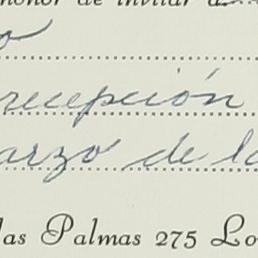 honor de invitar a
o
recepción
arzo de la
las Palmas 275 Lo